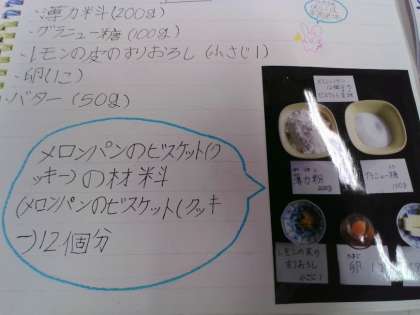 ・薄力料(200g)
・グラニュー糖(100g)
・レモンの皮のすりおろし(小さじ1)
・卵(1こ)
・バター(50g)
メロンパンのビスケット(ク
ッキー)の材料
(メロンパンのビスケット(クッキ
ー)12個分
薄力粉
200g
グラニュー糖
100g
レモンの皮の
すりおろし
小さじ1
卵